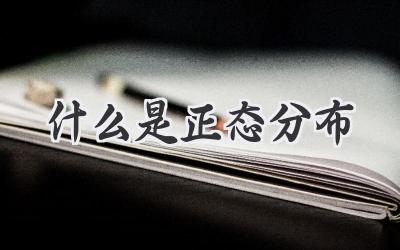 什么是正态分布